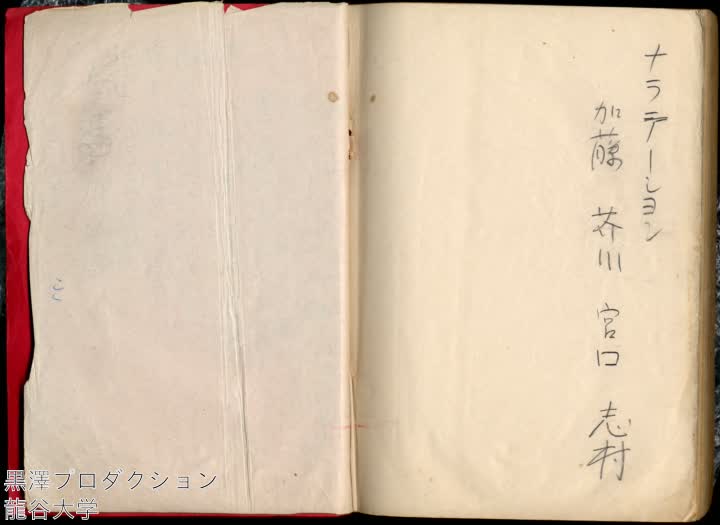 ナラテーション
加藤 芥川 宮口 志村
黒澤プロダクション
龍谷大学